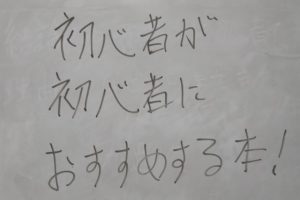 初心者が
初心者に
おすすめする本!